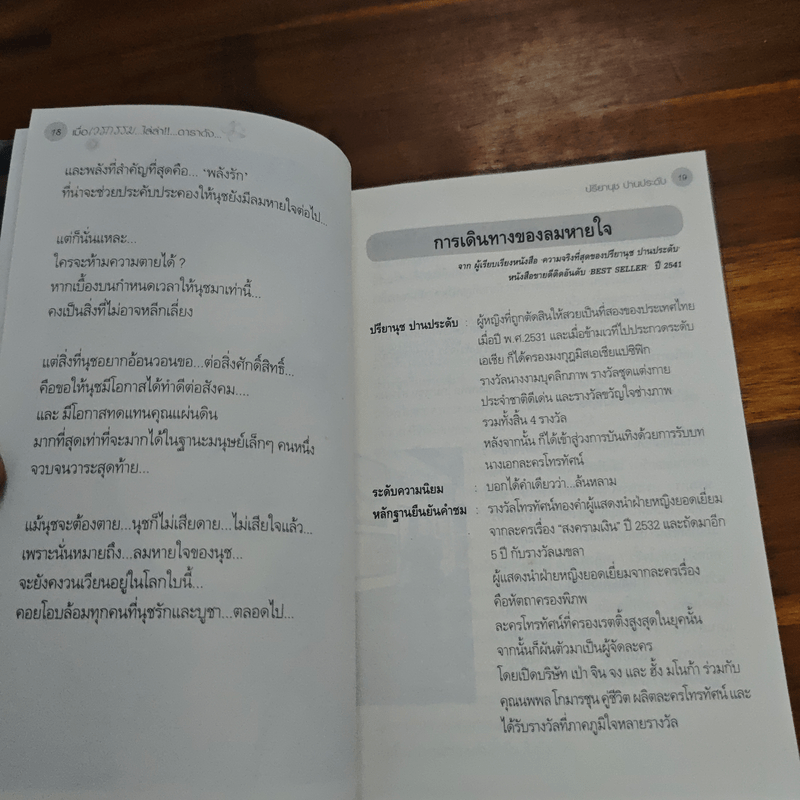 18 เมื่อเวรกรรม...ไล่ล่า!!...ดาราดัง...
และพลังที่สำคัญที่สุดคือ... ‘พลังรัก’
ที่น่าจะช่วยประคับประคองให้นุชยังมีลมหายใจต่อไป...
แต่ก็นั่นแหละ...
ใครจะห้ามความตายได้ ?
หากเบื้องบนกำหนดเวลาให้นุชมาเท่านี้...
คงเป็นสิ่งที่ไม่อาจหลีกเลี่ยง
แต่สิ่งที่นุชอยากอ้อนวอนขอ...ต่อสิ่งศักดิ์สิทธิ์...
คือขอให้นุชมีโอกาสได้ทำดีต่อสังคม....
และ มีโอกาสทดแทนคุณแผ่นดิน
มากที่สุดเท่าที่จะมากได้ในฐานะมนุษย์เล็กๆ คนหนึ่ง
จวบจนวาระสุดท้าย...
แม้นุชจะต้องตาย...นุชก็ไม่เสียดาย...ไม่เสียใจแล้ว...
เพราะนั่นหมายถึง...ลมหายใจของนุช...
จะยังคงวนเวียนอยู่ในโลกใบนี้...
คอยโอบล้อมทุกคนที่นุชรักและบูชา...ตลอดไป...
ปรียานุช ปานประดับ 19
การเดินทางของลมหายใจ
จาก ผู้เรียบเรียงหนังสือ ‘ความจริงที่สุดของปรียานุช ปานประดับ’
หนังสือขายดีติดอันดับ ‘BEST SELLER’ ปี 2541
ปรียานุช ปานประดับ : ผู้หญิงที่ถูกตัดสินให้สวยเป็นที่สองของประเทศไทย
เมื่อปี พ.ศ.2531 และเมื่อข้ามเวทีไปประกวดระดับ
เอเชีย ก็ได้ครองมงกุฎมิสเอเชียแปซิฟิก
รางวัลนางงามบุคลิกภาพ รางวัลชุดแต่งกาย
ประจำชาติดีเด่น และรางวัลขวัญใจช่างภาพ
รวมทั้งสิ้น 4 รางวัล
หลังจากนั้น ก็ได้เข้าสู่วงการบันเทิงด้วยการรับบท
นางเอกละครโทรทัศน์
ระดับความนิยม : บอกได้คำเดียวว่า...ล้นหลาม
หลักฐานยืนยันคำชม : รางวัลโทรทัศน์ทองคำผู้แสดงนำฝ่ายหญิงยอดเยี่ยม
จากละครเรื่อง “สงครามเงิน” ปี 2532 และถัดมาอีก
5 ปี กับรางวัลเมขลา
ผู้แสดงนำฝ่ายหญิงยอดเยี่ยมจากละครเรื่อง
คือหัตถาครองพิภพ
ละครโทรทัศน์ที่ครองเรตติ้งสูงสุดในยุคนั้น
จากนั้นก็ผันตัวมาเป็นผู้จัดละคร
โดยเปิดบริษัท เป่า จิน จง และ ฮั้ง มโนก้า ร่วมกับ
คุณนพพล โกมารชุน คู่ชีวิต ผลิตละครโทรทัศน์ และ
ได้รับรางวัลที่ภาคภูมิใจหลายรางวัล